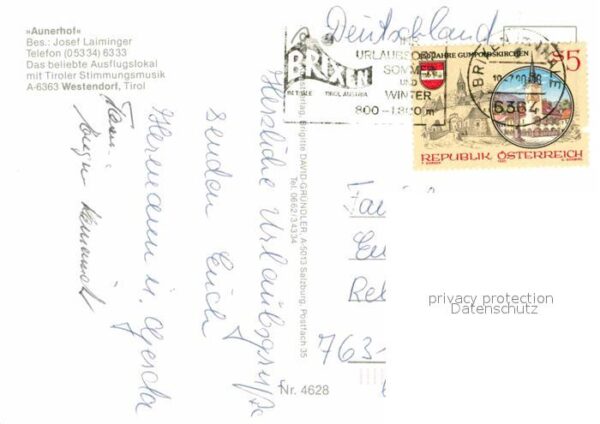 »Aunerhof«
Bes.: Josef Laiminger
Telefon (05334) 6333
Das beliebte Ausflugslokal
mit Tiroler Stimmungsmusik
A-6363 Westendorf, Tirol
Herzliche Urlaubsgrüße
senden Euch
Hermann u. Gerda
Fam.
Verlag, Brigitte DAVID-GRÜNDLER, A-5013 Salzburg, Postfach 35
Tel. 0662/34334
Nr. 4628
Deutschland
BRIXEN
IM THALE TIROL AUSTRIA
IHR
URLAUBSORT
SOMMER
UND
WINTER
800-1800m
6364 BRIXEN IM THALE
JAHRE GUMPOLDSKIRCHEN
S5
REPUBLIK ÖSTERREICH
763
privacy protection
Datenschutz